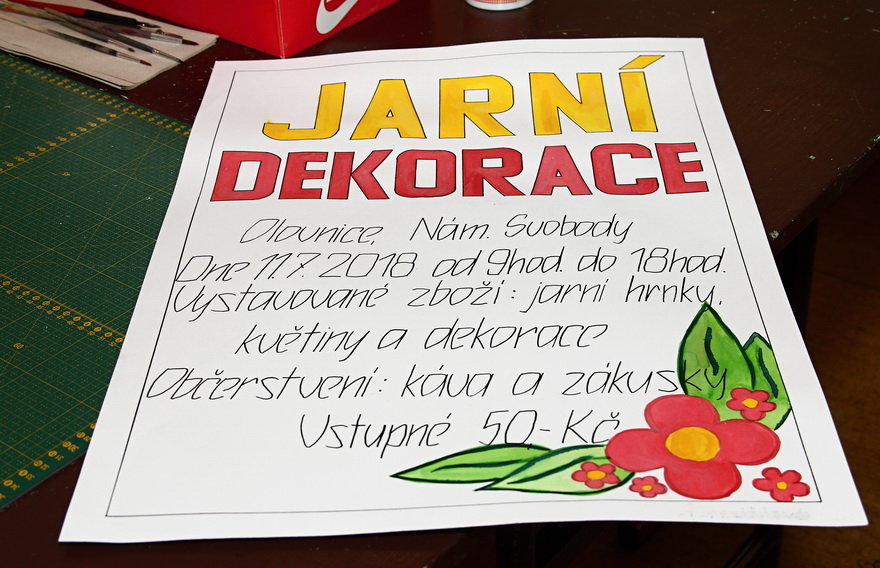 JARNÍ
DEKORACE
Olovnice, Nám. Svobody
Dne 11.7.2018 od 9hod. do 18hod.
Vystavované zboží: jarní hrnky,
květiny a dekorace
Občerstvení: káva a zákusky
Vstupné 50-Kč